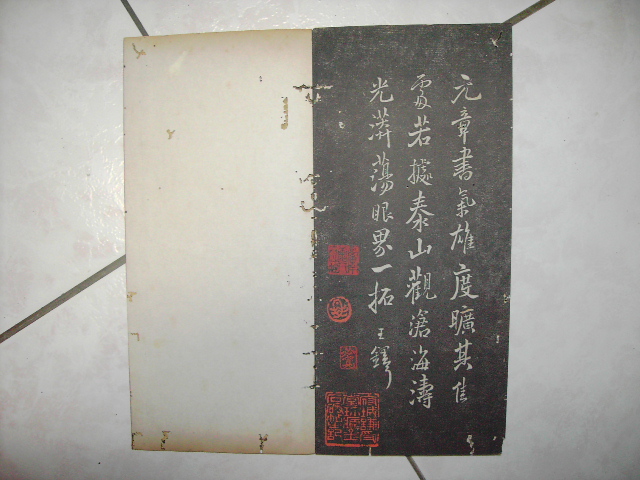 元章書氣雄度曠其佳
處若據泰山觀滄海濤
光漭蕩眼界一拓 王鐸